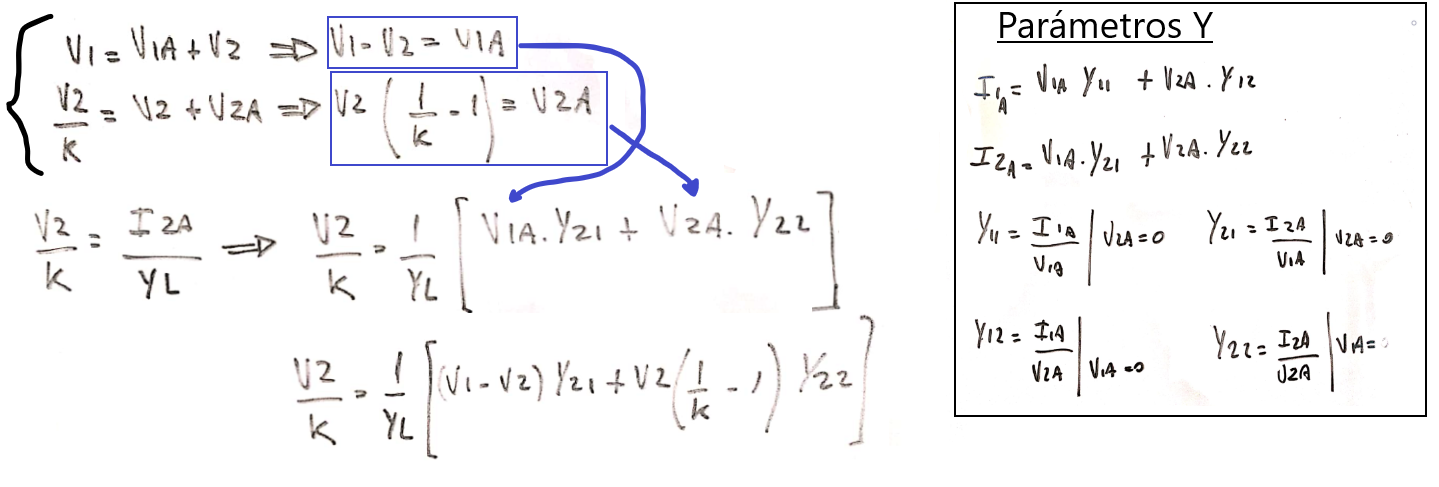 V1 = V1A + V2 ⇒ V1 - V2 = V1A
V2/K = V2 + V2A ⇒ V2 (1/K - 1) = V2A
V2/K = I2A/YL ⇒ V2/K = 1/YL [V1A . Y21 + V2A . Y22]
V2/K = 1/YL [(V1 - V2) Y21 + V2 (1/K - 1) Y22]
Parámetros Y
I1A = V1A Y11 + V2A . Y12
I2A = V1A . Y21 + V2A . Y22
Y11 = I1A/V1A | V2A = 0 Y21 = I2A/V1A | V2A = 0
Y12 = I1A/V2A | V1A = 0 Y22 = I2A/V2A | V1A =